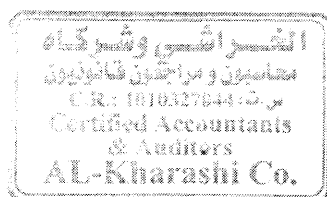 الخراشي وشركاه
محاسبون و مراجعون قانونيون
C.R.: 1010327044 :س.ت
Certified Accountants
& Auditors
AL-Kharashi Co.